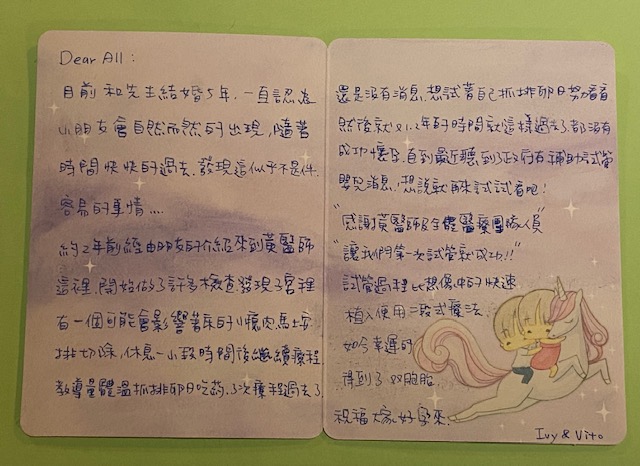 Dear All:
目前和先生結婚5年,一直認為
小朋友會自然而然的出現,隨著
時間快快的過去,發現這似乎不是件
容易的事情....
約2年前經由朋友的介紹來到黃醫師
這裡,開始做了許多檢查發現子宮裡
有一個可能會影響著床的小瘜肉馬上安
排切除,休息一小段時間後繼續療程
教導量體溫抓排卵日吃药,3次療程過去了
還是沒有消息,想試著自己抓排卵日努力看看
然後就又1.2年的時間就這樣過去了都沒有
成功懷孕,直到最近聽到了政府有補助試管
嬰兒消息,想說就再來試試看吧!
"感謝黃醫師及全體醫療團隊人員"
"讓我們第一次試管就成功!!"
試管過程比想像中的快速
植入使用二段式療法
如今幸運的
得到了双胞胎
祝福大家好孕來.
Ivy & Vito